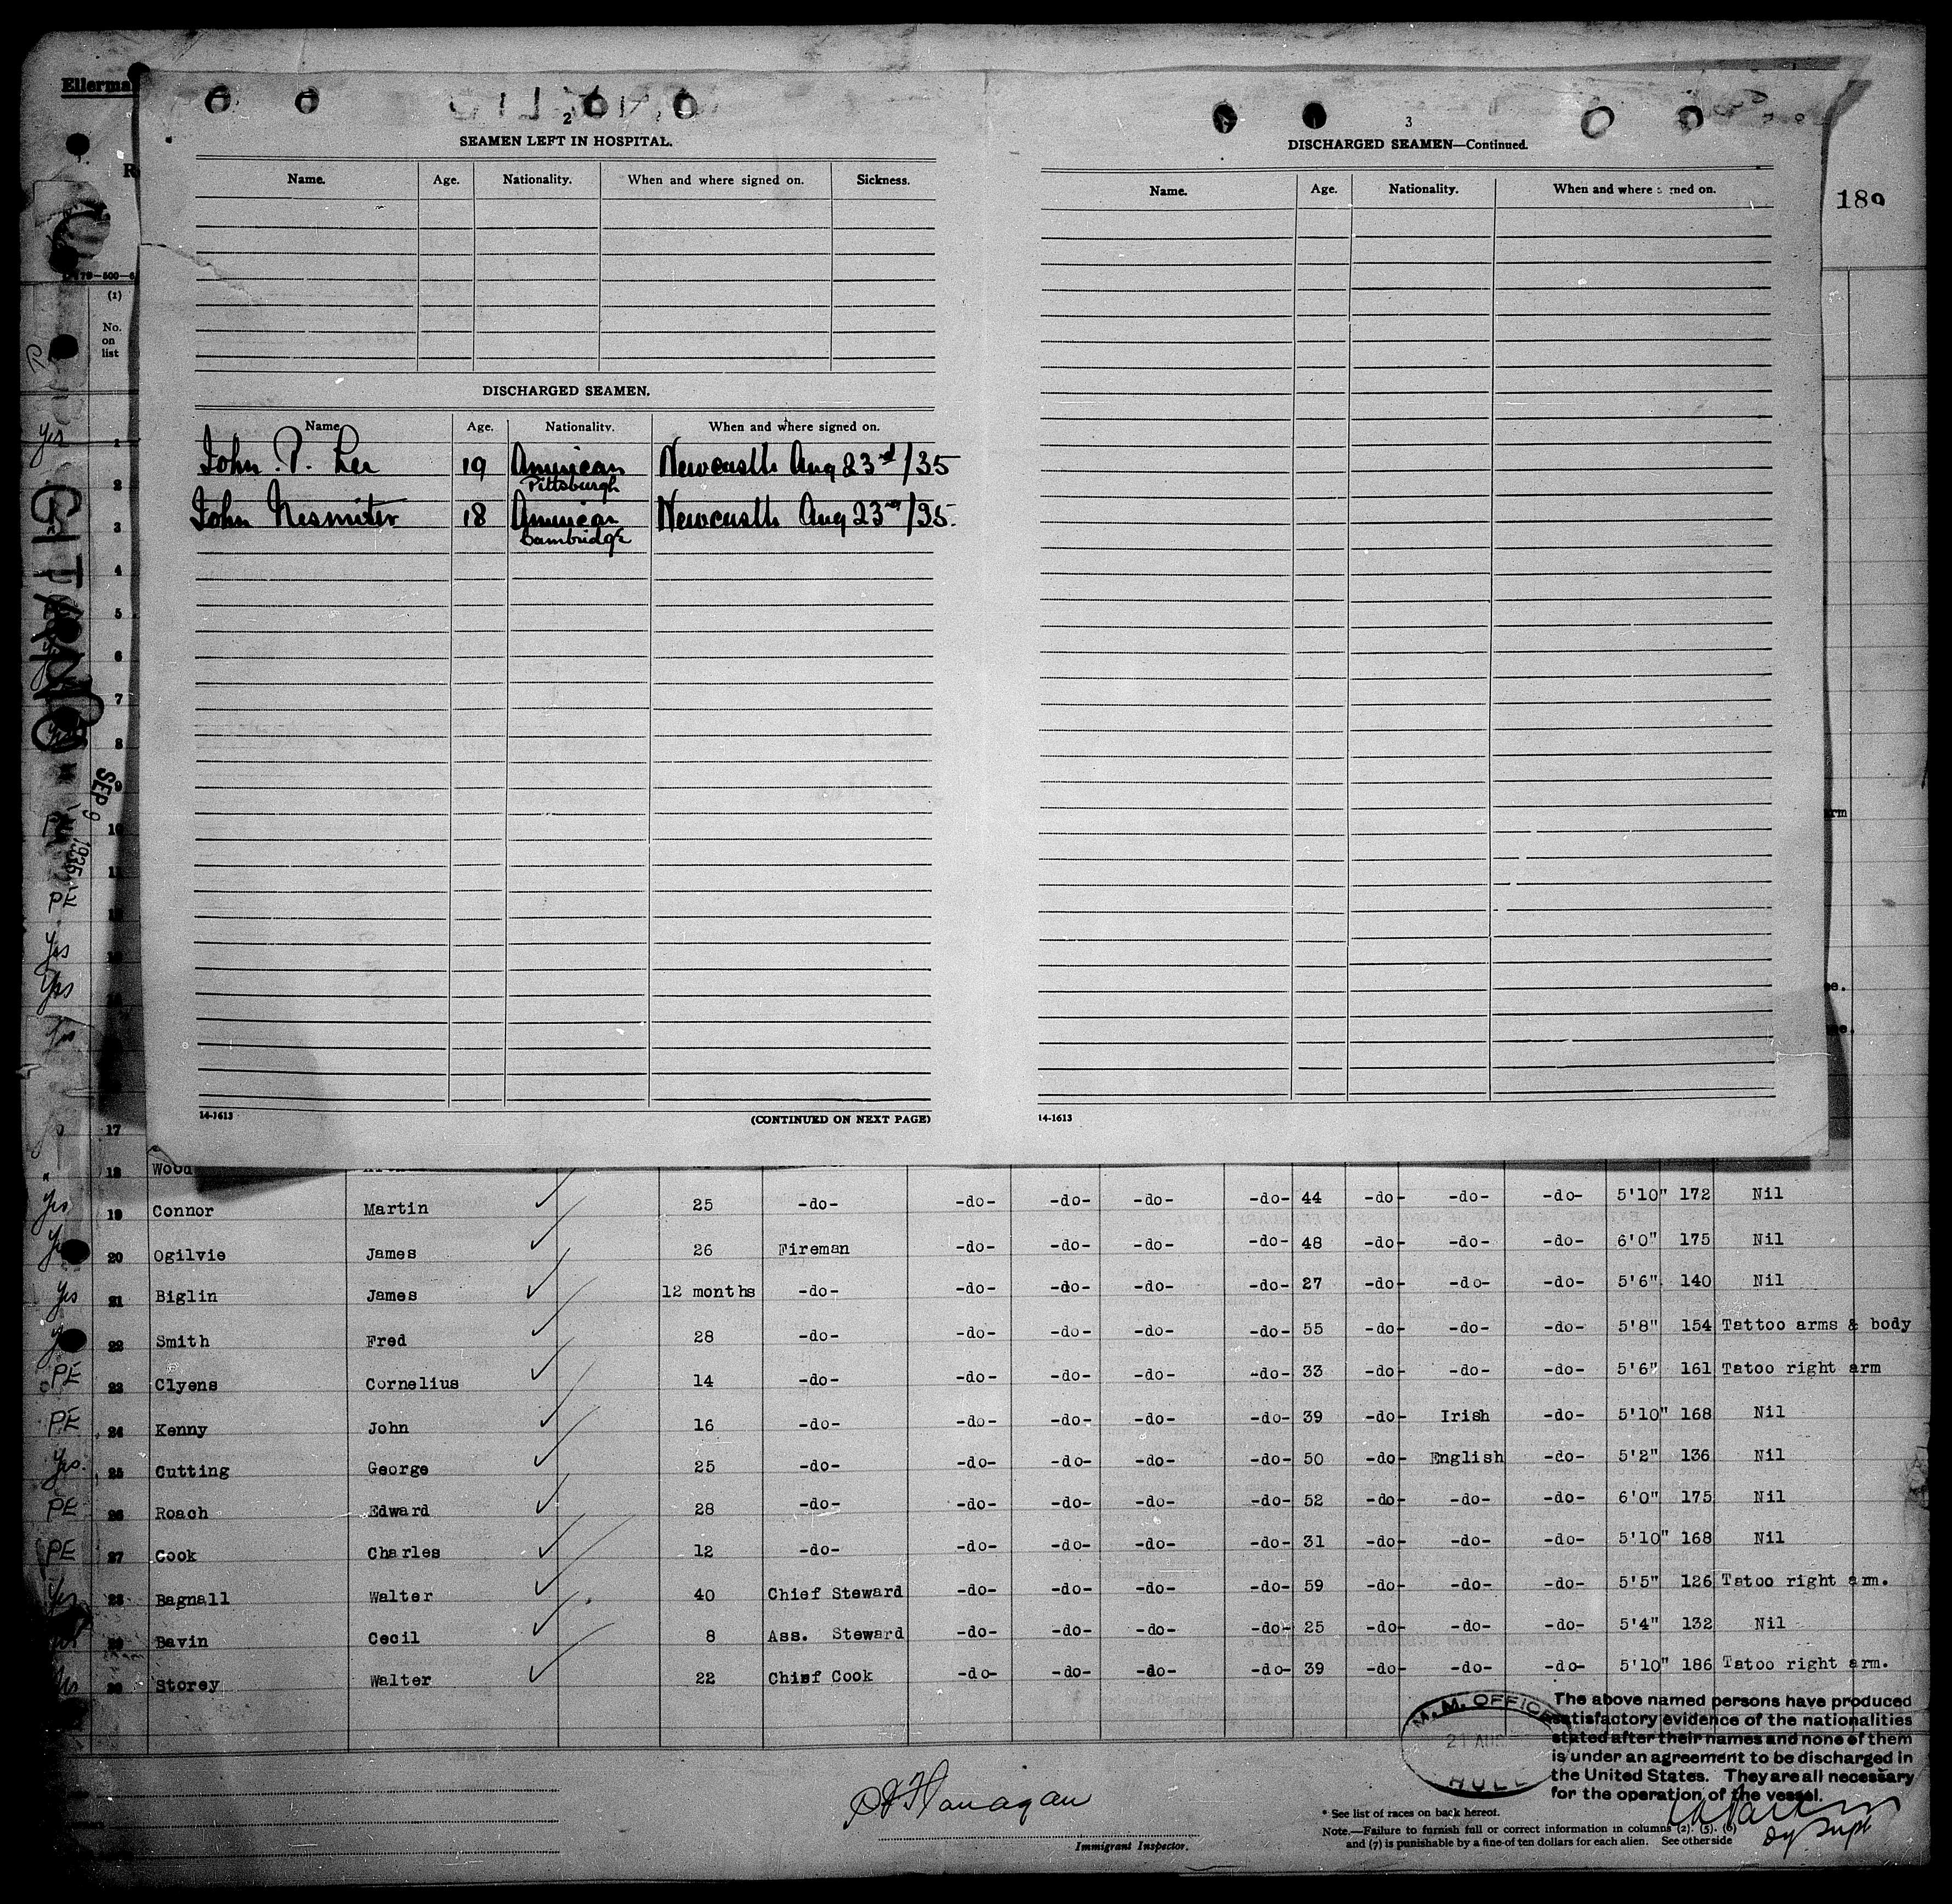 Ellerma
189
2
SEAMEN LEFT IN HOSPITAL.
Name. Age. Nationality. When and where signed on. Sickness.
DISCHARGED SEAMEN.
Name Age. Nationality. When and where signed on.
John P. Lee 19 American Newcastle Aug 23rd/35
Pittsburgh
John Nesmiter 18 American Newcastle Aug 23rd/35.
Cambridge
14-1613 (CONTINUED ON NEXT PAGE)
3
DISCHARGED SEAMEN—Continued.
Name. Age. Nationality. When and where signed on.
14-1613
(1)
No.
on
list
yes
1
2
3
4
5
6
7
8
9
10
CITANO
SEP 9 1935
PE
Yes
Yes
Yes
17
18 Wood
Yes 19 Connor Martin 25 -do- -do- -do- -do- -do- 44 -do- -do- -do- 5'10" 172 Nil
20 Ogilvie James 26 Fireman -do- -do- -do- -do- 48 -do- -do- -do- 6'0" 175 Nil
Yes 21 Biglin James 12 months -do- -do- -do- -do- -do- 27 -do- -do- -do- 5'6" 140 Nil
22 Smith Fred 28 -do- -do- -do- -do- -do- 55 -do- -do- -do- 5'8" 154 Tattoo arms & body
PE 23 Clyens Cornelius 14 -do- -do- -do- -do- -do- 33 -do- -do- -do- 5'6" 161 Tatoo right arm
PE 24 Kenny John 16 -do- -do- -do- -do- -do- 39 -do- Irish -do- 5'10" 168 Nil
Yes 25 Cutting George 25 -do- -do- -do- -do- -do- 50 -do- English -do- 5'2" 136 Nil
PE 26 Roach Edward 28 -do- -do- -do- -do- -do- 52 -do- -do- -do- 6'0" 175 Nil
PE 27 Cook Charles 12 -do- -do- -do- -do- -do- 31 -do- -do- -do- 5'10" 168 Nil
Yes 28 Bagnall Walter 40 Chief Steward -do- -do- -do- -do- 59 -do- -do- -do- 5'5" 126 Tatoo right arm.
29 Bavin Cecil 8 Ass. Steward -do- -do- -do- -do- 25 -do- -do- -do- 5'4" 132 Nil
30 Storey Walter 22 Chief Cook -do- -do- -do- -do- 39 -do- -do- -do- 5'10" 186 Tatoo right arm.
M. M. OFFICE
21 AUG
HULL
The above named persons have produced
satisfactory evidence of the nationalities
stated after their names and none of them
is under an agreement to be discharged in
the United States. They are all necessary
for the operation of the vessel.
Dy Supt
Flanagan
Immigrant Inspector.
* See list of races on back hereof.
Note.—Failure to furnish full or correct information in columns (2), (5), (6)
and (7) is punishable by a fine of ten dollars for each alien. See other side